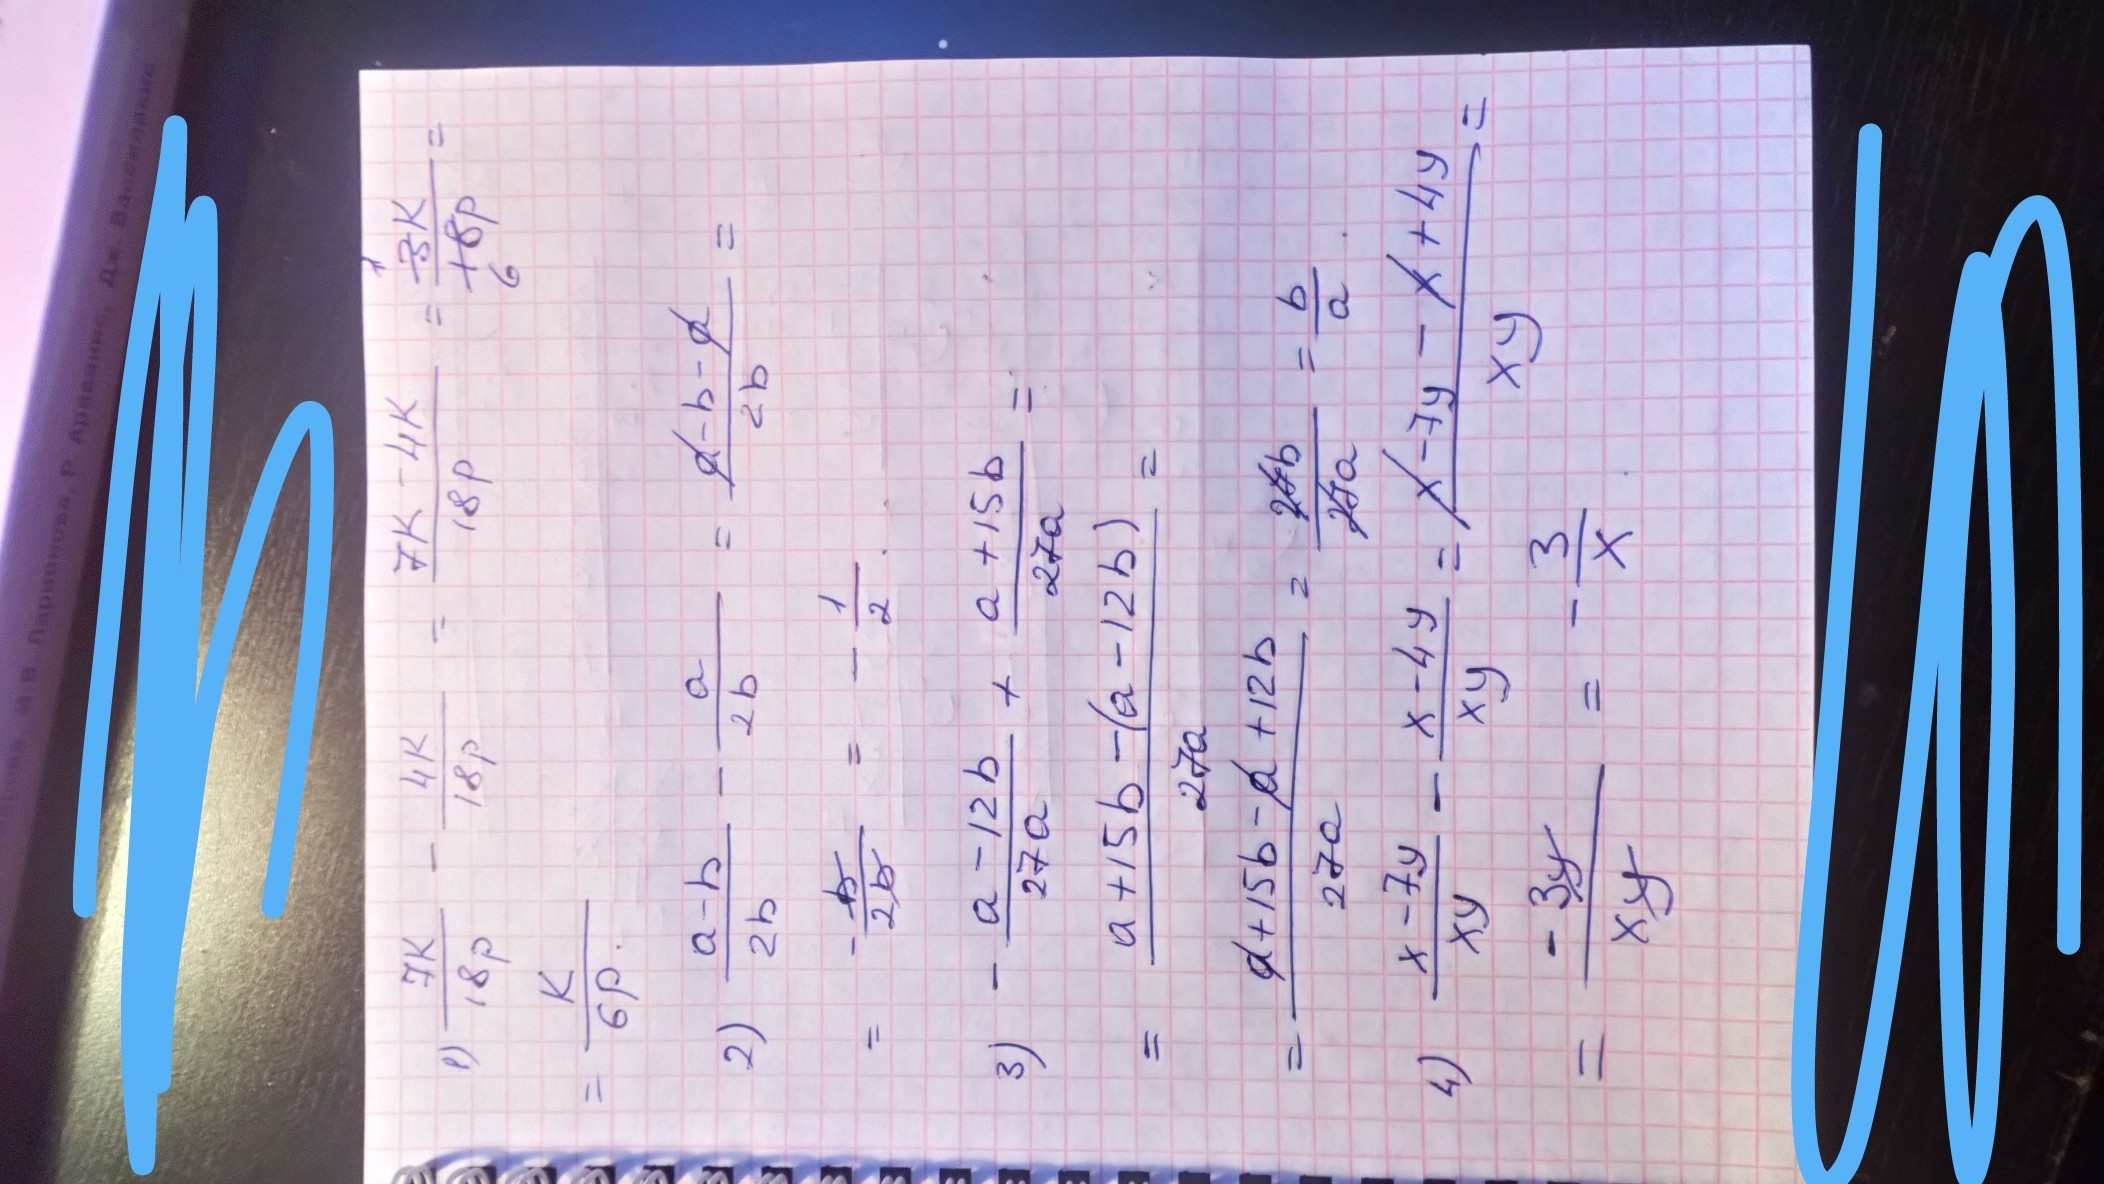 1) 7K/18p - 4K/18p = 7K-4K/18p = 3K/18p =
1
6
= K/6p.
2) a-b/2b - a/2b = a-b-a/2b =
= -b/2b = -1/2.
3) - a-12b/27a + a+15b/27a =
= a+15b-(a-12b)/27a =
= a+15b-a+12b/27a = 27b/27a = b/a.
4) x-7y/xy - x-4y/xy = x-7y-x+4y/xy =
= -3y/xy = -3/x.